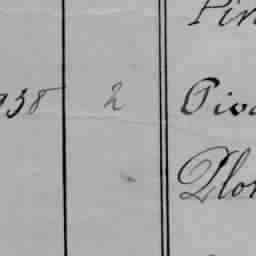 Pin
938 2 Pivo
Plon